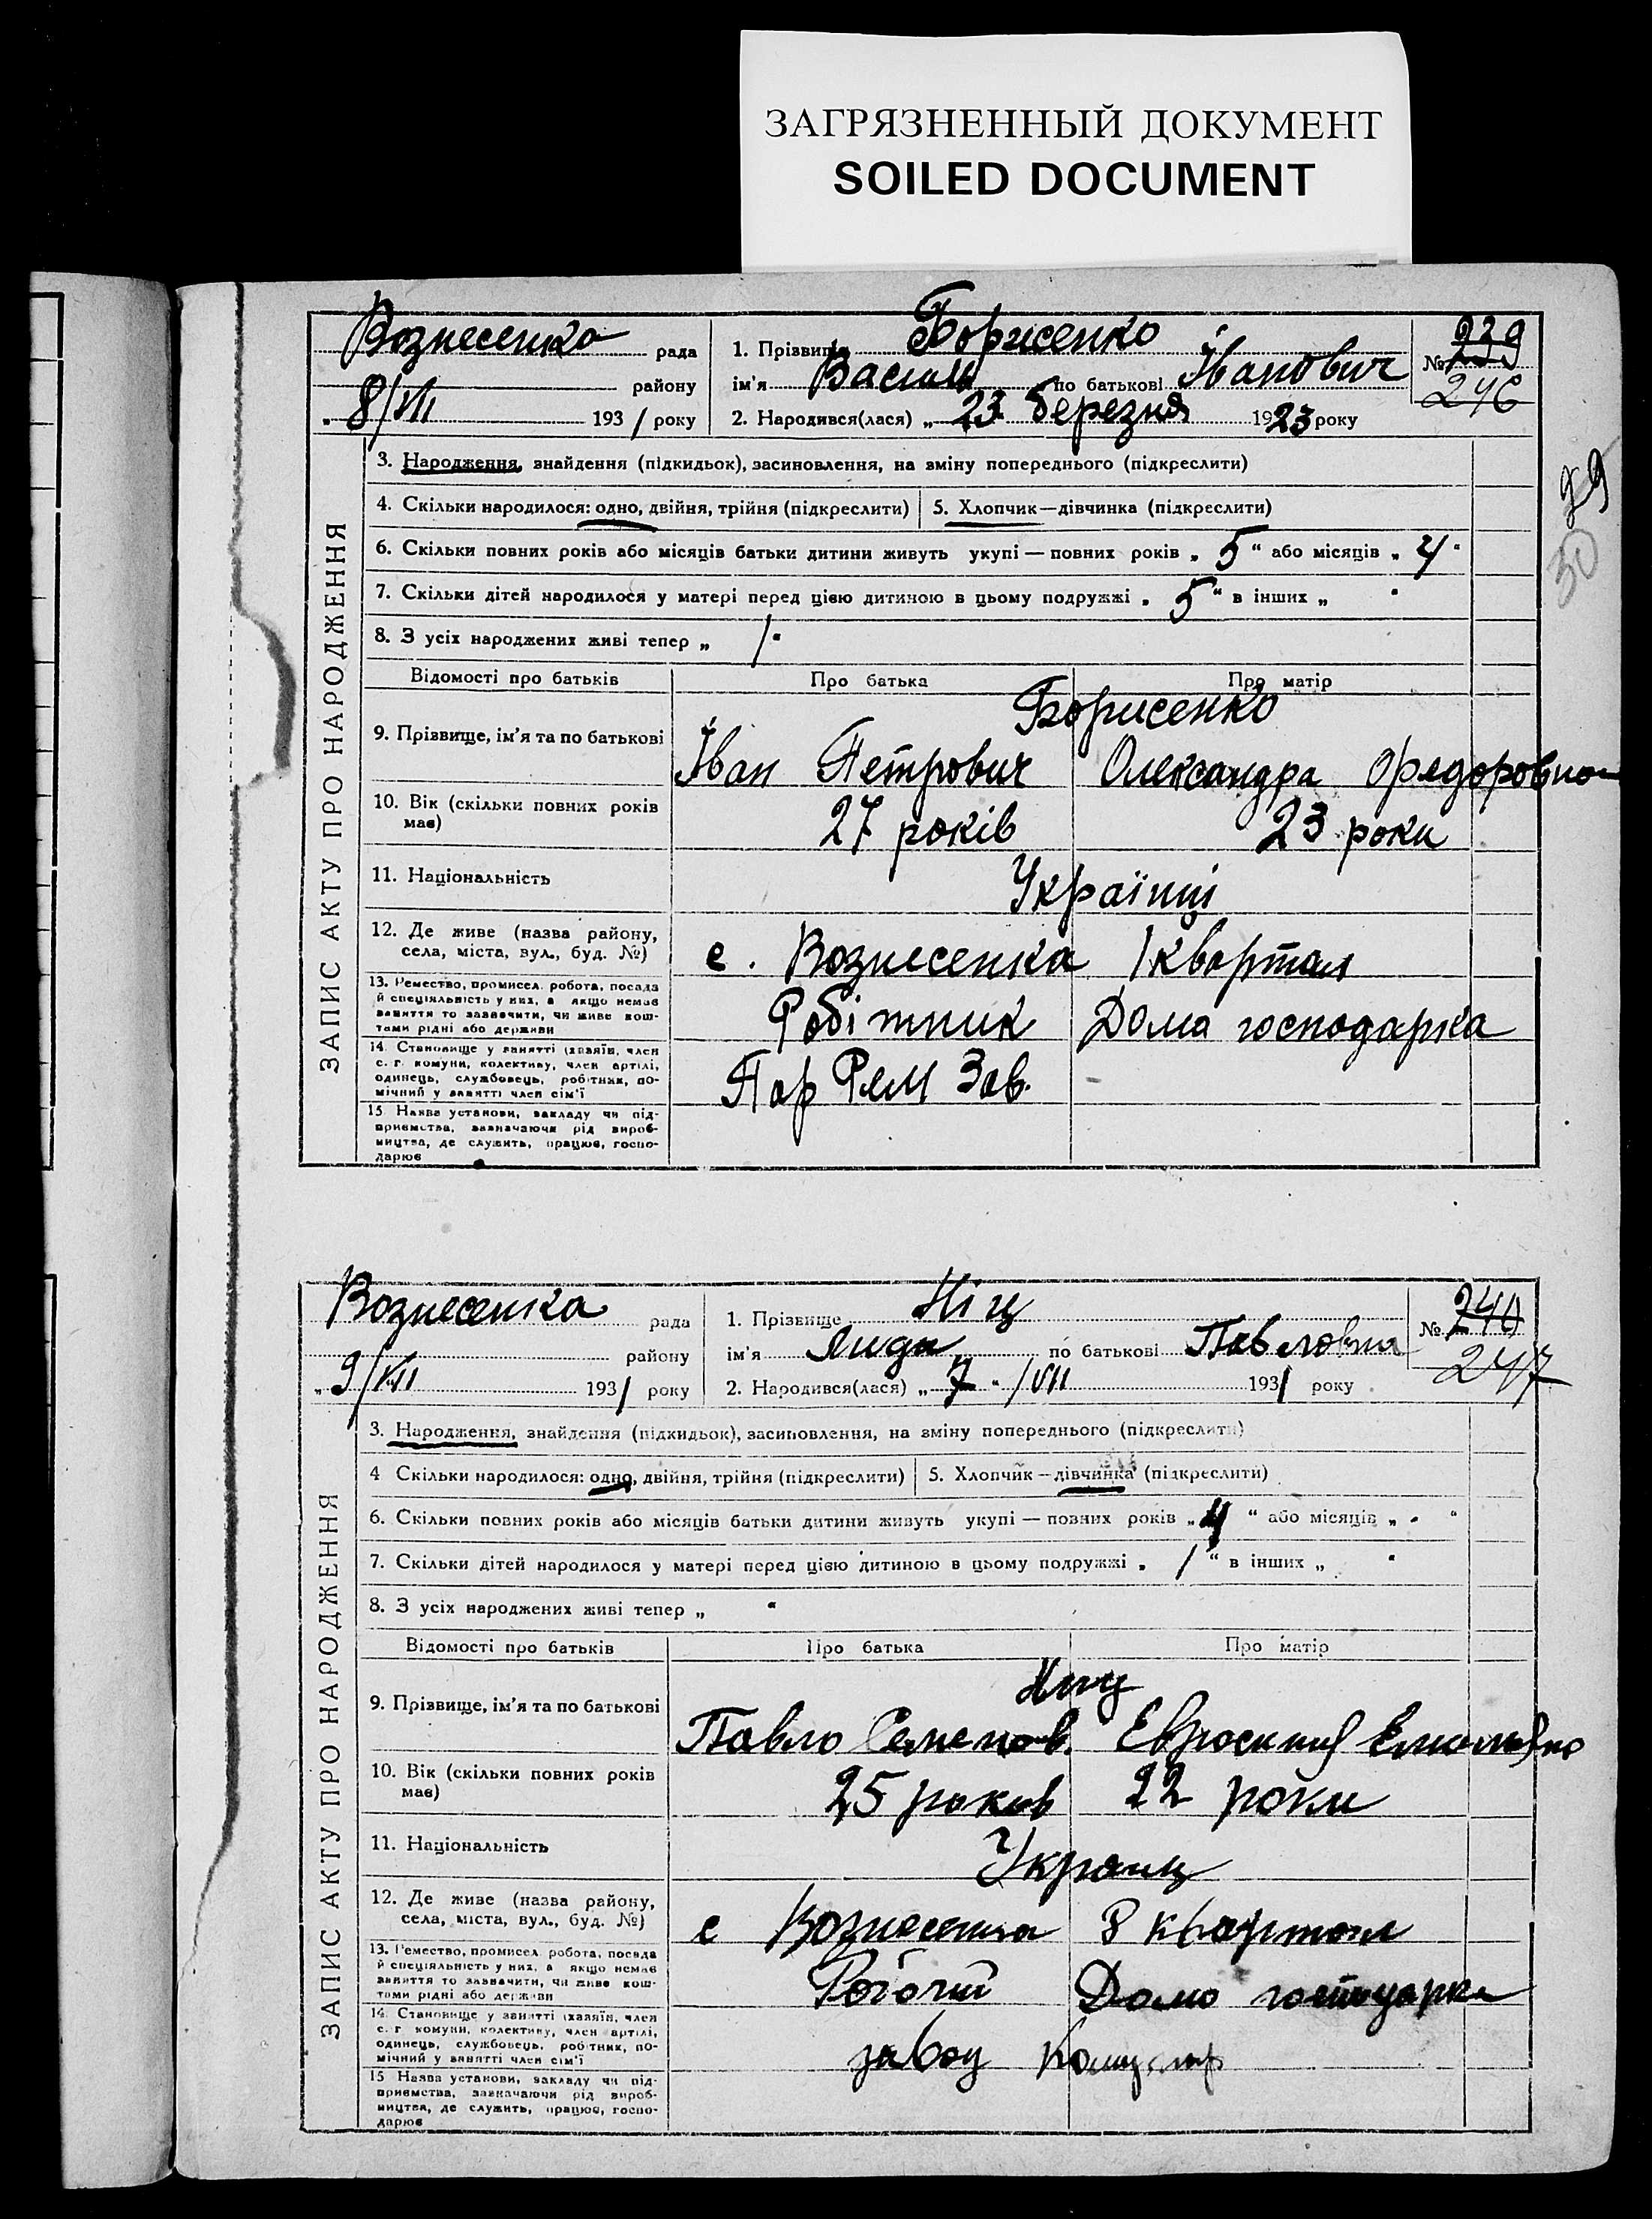 ЗАГРЯЗНЕННЫЙ ДОКУМЕНТ
SOILED DOCUMENT
Вознесенка рада
району
„ 8/VII 1931 року
1. Прізвище Борисенко
ім'я Василь по батькові Іванович
2. Народився(лася) „ 23 березня 1923 року
№ 239
246
29
30
ЗАПИС АКТУ ПРО НАРОДЖЕННЯ
3. Народження, знайдення (підкидьок), засиновлення, на зміну попереднього (підкреслити)
4. Скільки народилося: одно, двійня, трійня (підкреслити) 5. Хлопчик—дівчинка (підкреслити)
6. Скільки повних років або місяців батьки дитини живуть укупі — повних років „ 5 “ або місяців „ 4 "
7. Скільки дітей народилося у матері перед цією дитиною в цьому подружжі „ 5 “ в інших „ "
8. З усіх народжених живі тепер „ 1 "
Відомості про батьків Про батька Про матір
Борисенко
9. Прізвище, ім'я та по батькові Іван Петрович Олександра Фрядоровна
10. Вік (скільки повних років має) 27 років 23 роки
11. Національність Українці
12. Де живе (назва району, села, міста, вул., буд. №) с. Вознесенка 1 квартал
13. Ремество, промисел, робота, посада й спеціяльність у них, а якщо немає заняття то зазначити, чи живе коштами рідні або держави Робітник Дома господарка
14. Становище у занятті (хазяїн, член с. г. комуни, колективу, член артілі, одинець, службовець, робітник, помічний у занятті член сім'ї Пар Рем Зав.
15. Назва установи, закладу чи підприємства, зазначаючи рід виробництва, де служить, працює, господарює
Вознесенка рада
району
„ 9/VII 1931 року
1. Прізвище Ніц
ім'я Лида по батькові Павловна
2. Народився(лася) „ 7 " /VII 1931 року
№ 240
247
ЗАПИС АКТУ ПРО НАРОДЖЕННЯ
3. Народження, знайдення (підкидьок), засиновлення, на зміну попереднього (підкреслити)
4 Скільки народилося: одно, двійня, трійня (підкреслити) 5. Хлопчик—дівчинка (підкреслити)
6. Скільки повних років або місяців батьки дитини живуть укупі — повних років „ 4 “ або місяців „ "
7. Скільки дітей народилося у матері перед цією дитиною в цьому подружжі „ 1 “ в інших „ "
8. З усіх народжених живі тепер „ "
Відомості про батьків Про батька Про матір
9. Прізвище, ім'я та по батькові Павло Семенов. Евросиния
10. Вік (скільки повних років має) 25 роков 22 роки
11. Національність Украинц
12. Де живе (назва району, села, міста, вул., буд. №) с Вознесенка 8 квартал
13. Ремество, промисел, робота, посада й спеціяльність у них, а якщо немає заняття то зазначити, чи живе коштами рідні або держави Робочий Домо господарка
14. Становище у занятті (хазяїн, член с. г. комуни, колективу, член артілі, одинець, службовець, робітник, помічний у занятті член сім'ї завод
15 Назва установи, закладу чи підприємства, зазначаючи рід виробництва, де служить, працює, господарює